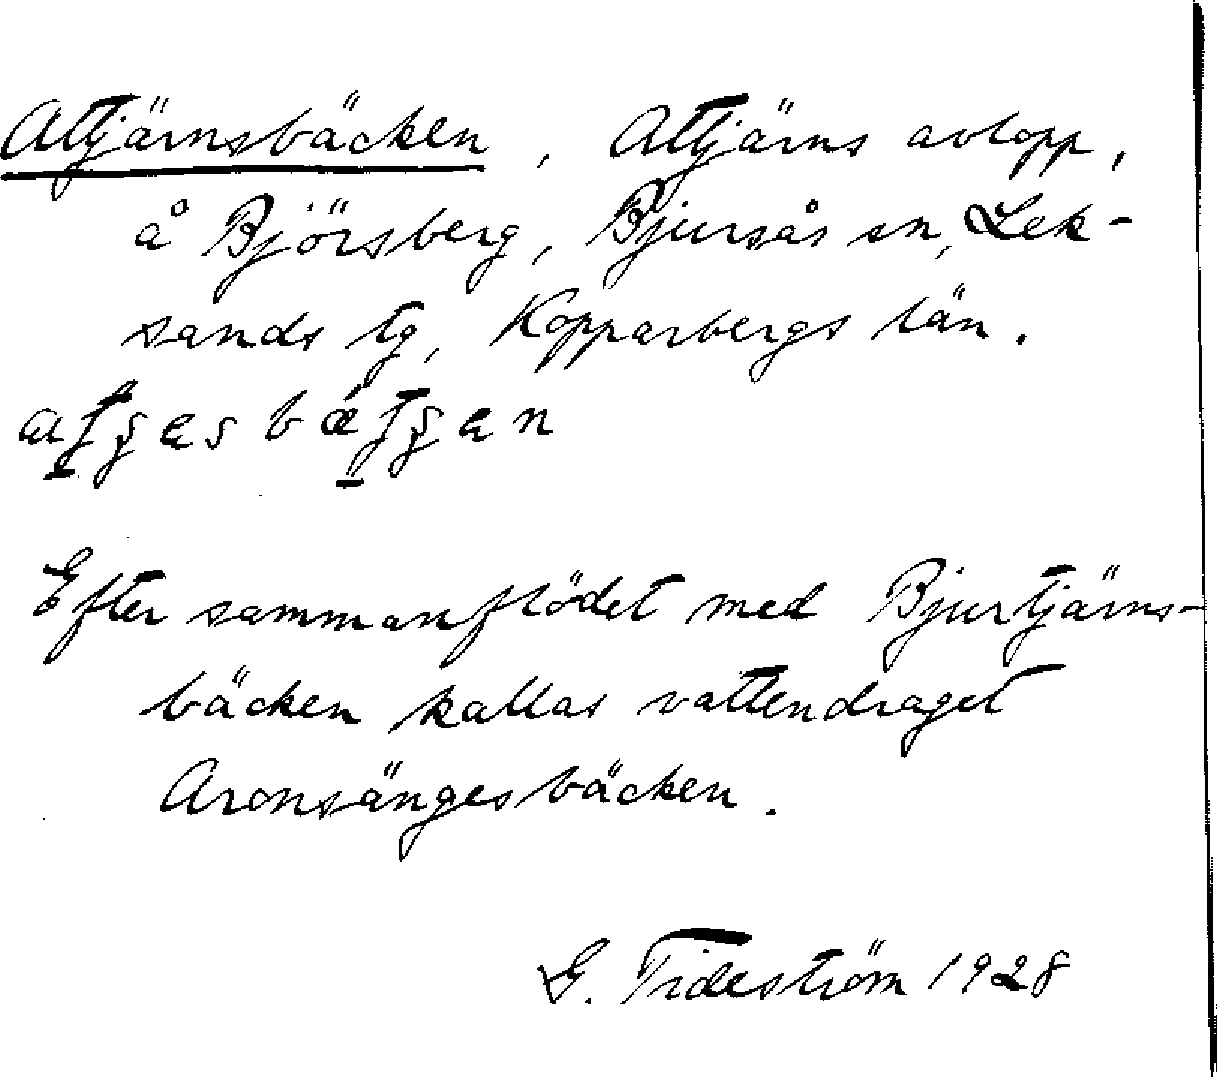 Attjärnsbäcken, Attjärns avlopp,
å Björsberg, Bjursås sn, Lek-
sands tg, Kopparbergs län.
Efter sammanflödet med Bjurtjärns-
bäcken kallas vattendraget
Aronsängesbäcken.
G. Tideström 1928